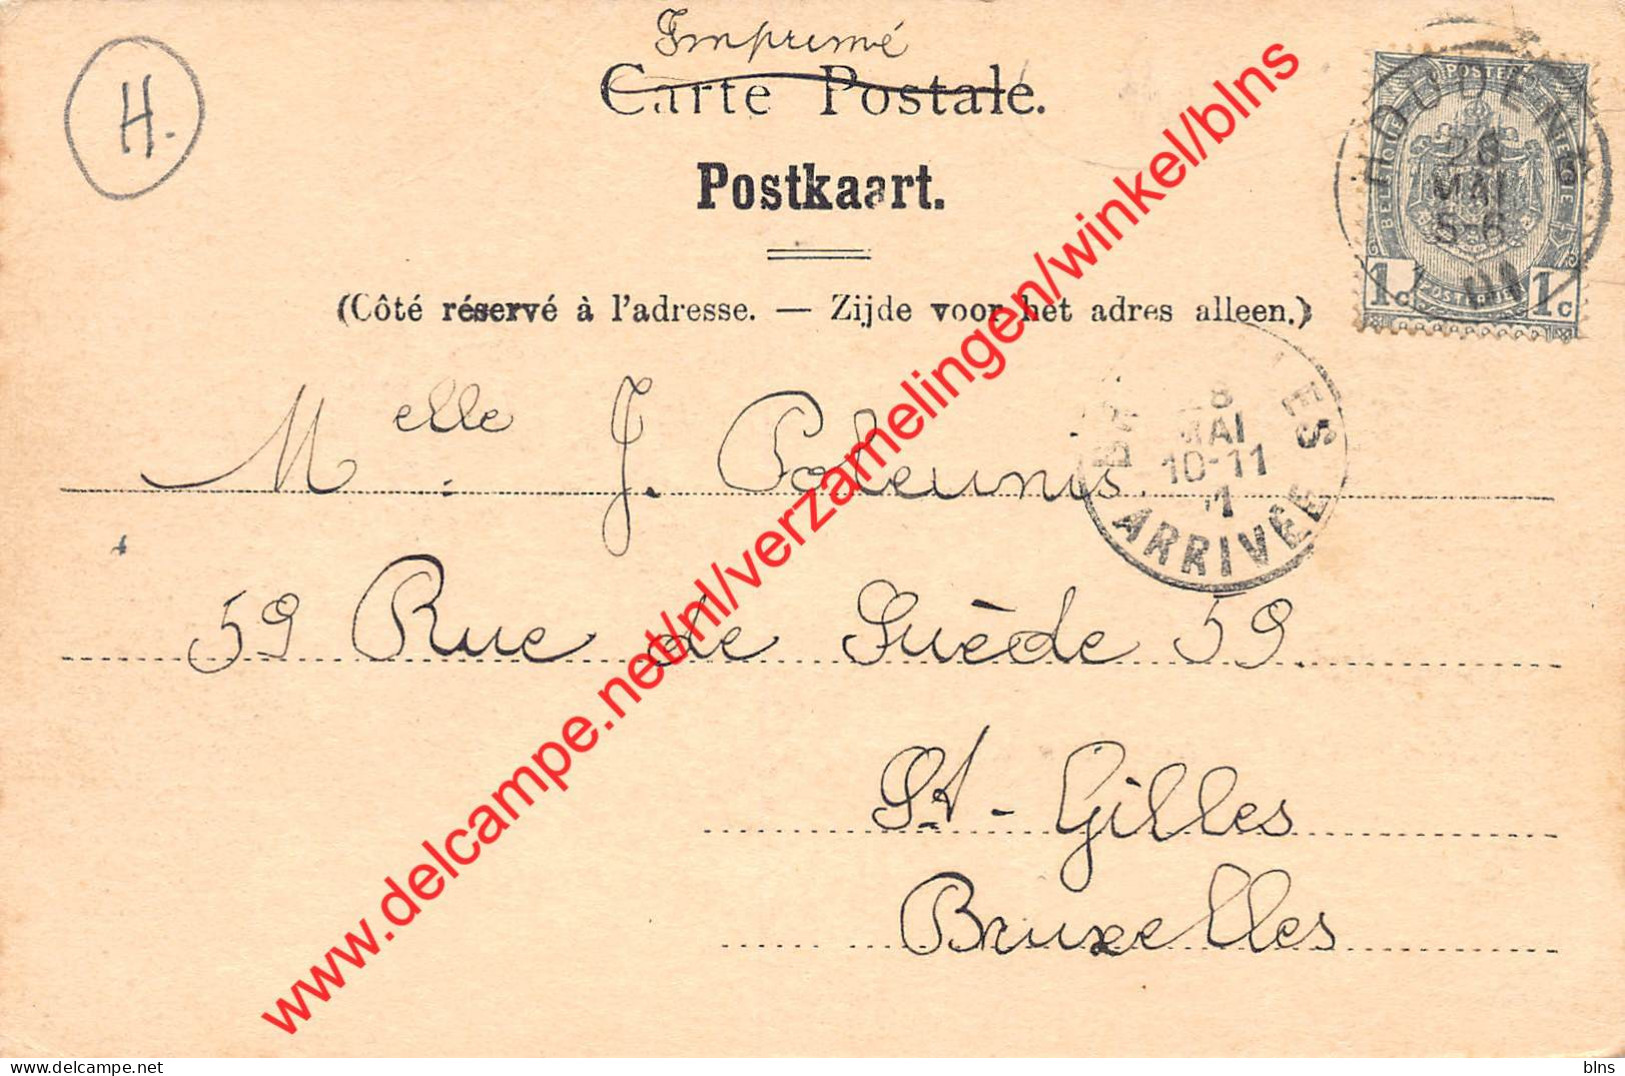 Imprimé
Carte Postale.
Postkaart.
(Côté réservé à l'adresse. — Zijde voor het adres alleen.)
H.
POSTERIJEN
BELGIQUE
1c 1c
28
MAI
5-6
Melle J. Poleunis.
8
MAI
10-11
ARRIVÉE
59 Rue de Suède 59.
St-Gilles
Bruxelles
www.delcampe.net/nl/verzamelingen/winkel/blns
delcampe.net
blns